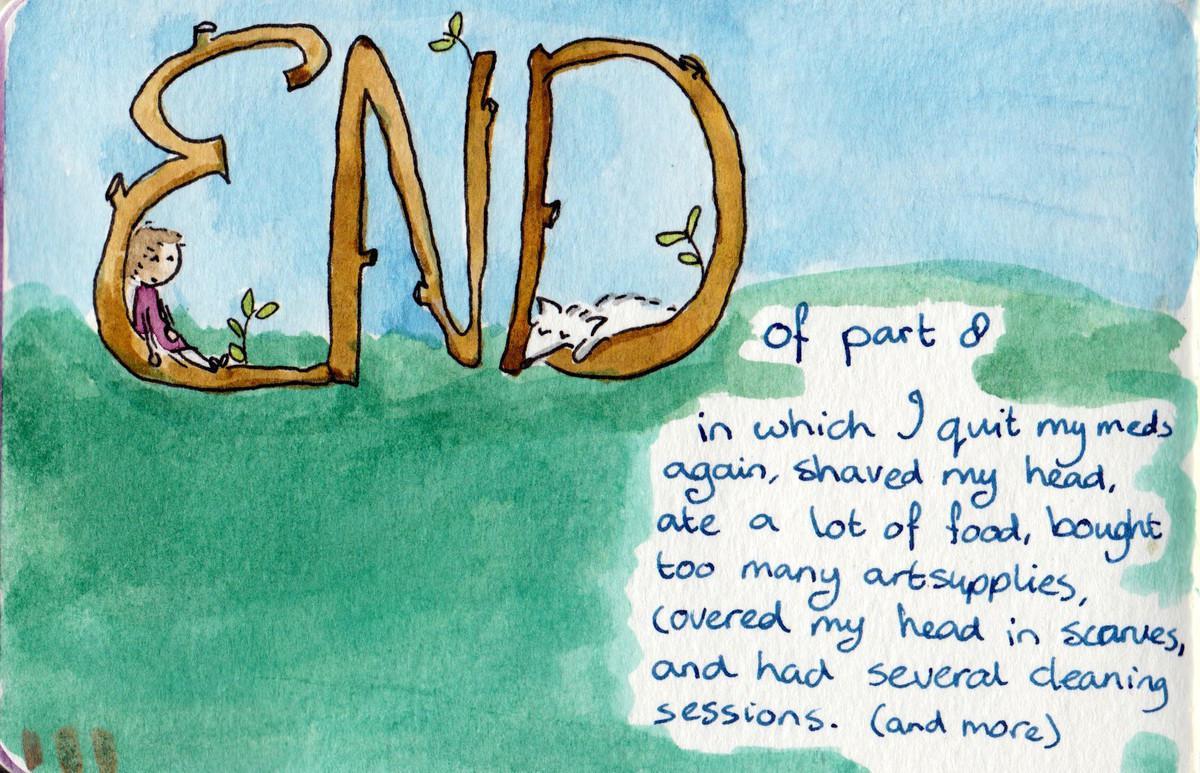 END
of part 8
in which I quit my meds
again, shaved my head,
ate a lot of food, bought
too many artsupplies,
covered my head in scarves,
and had several cleaning
sessions. (and more)